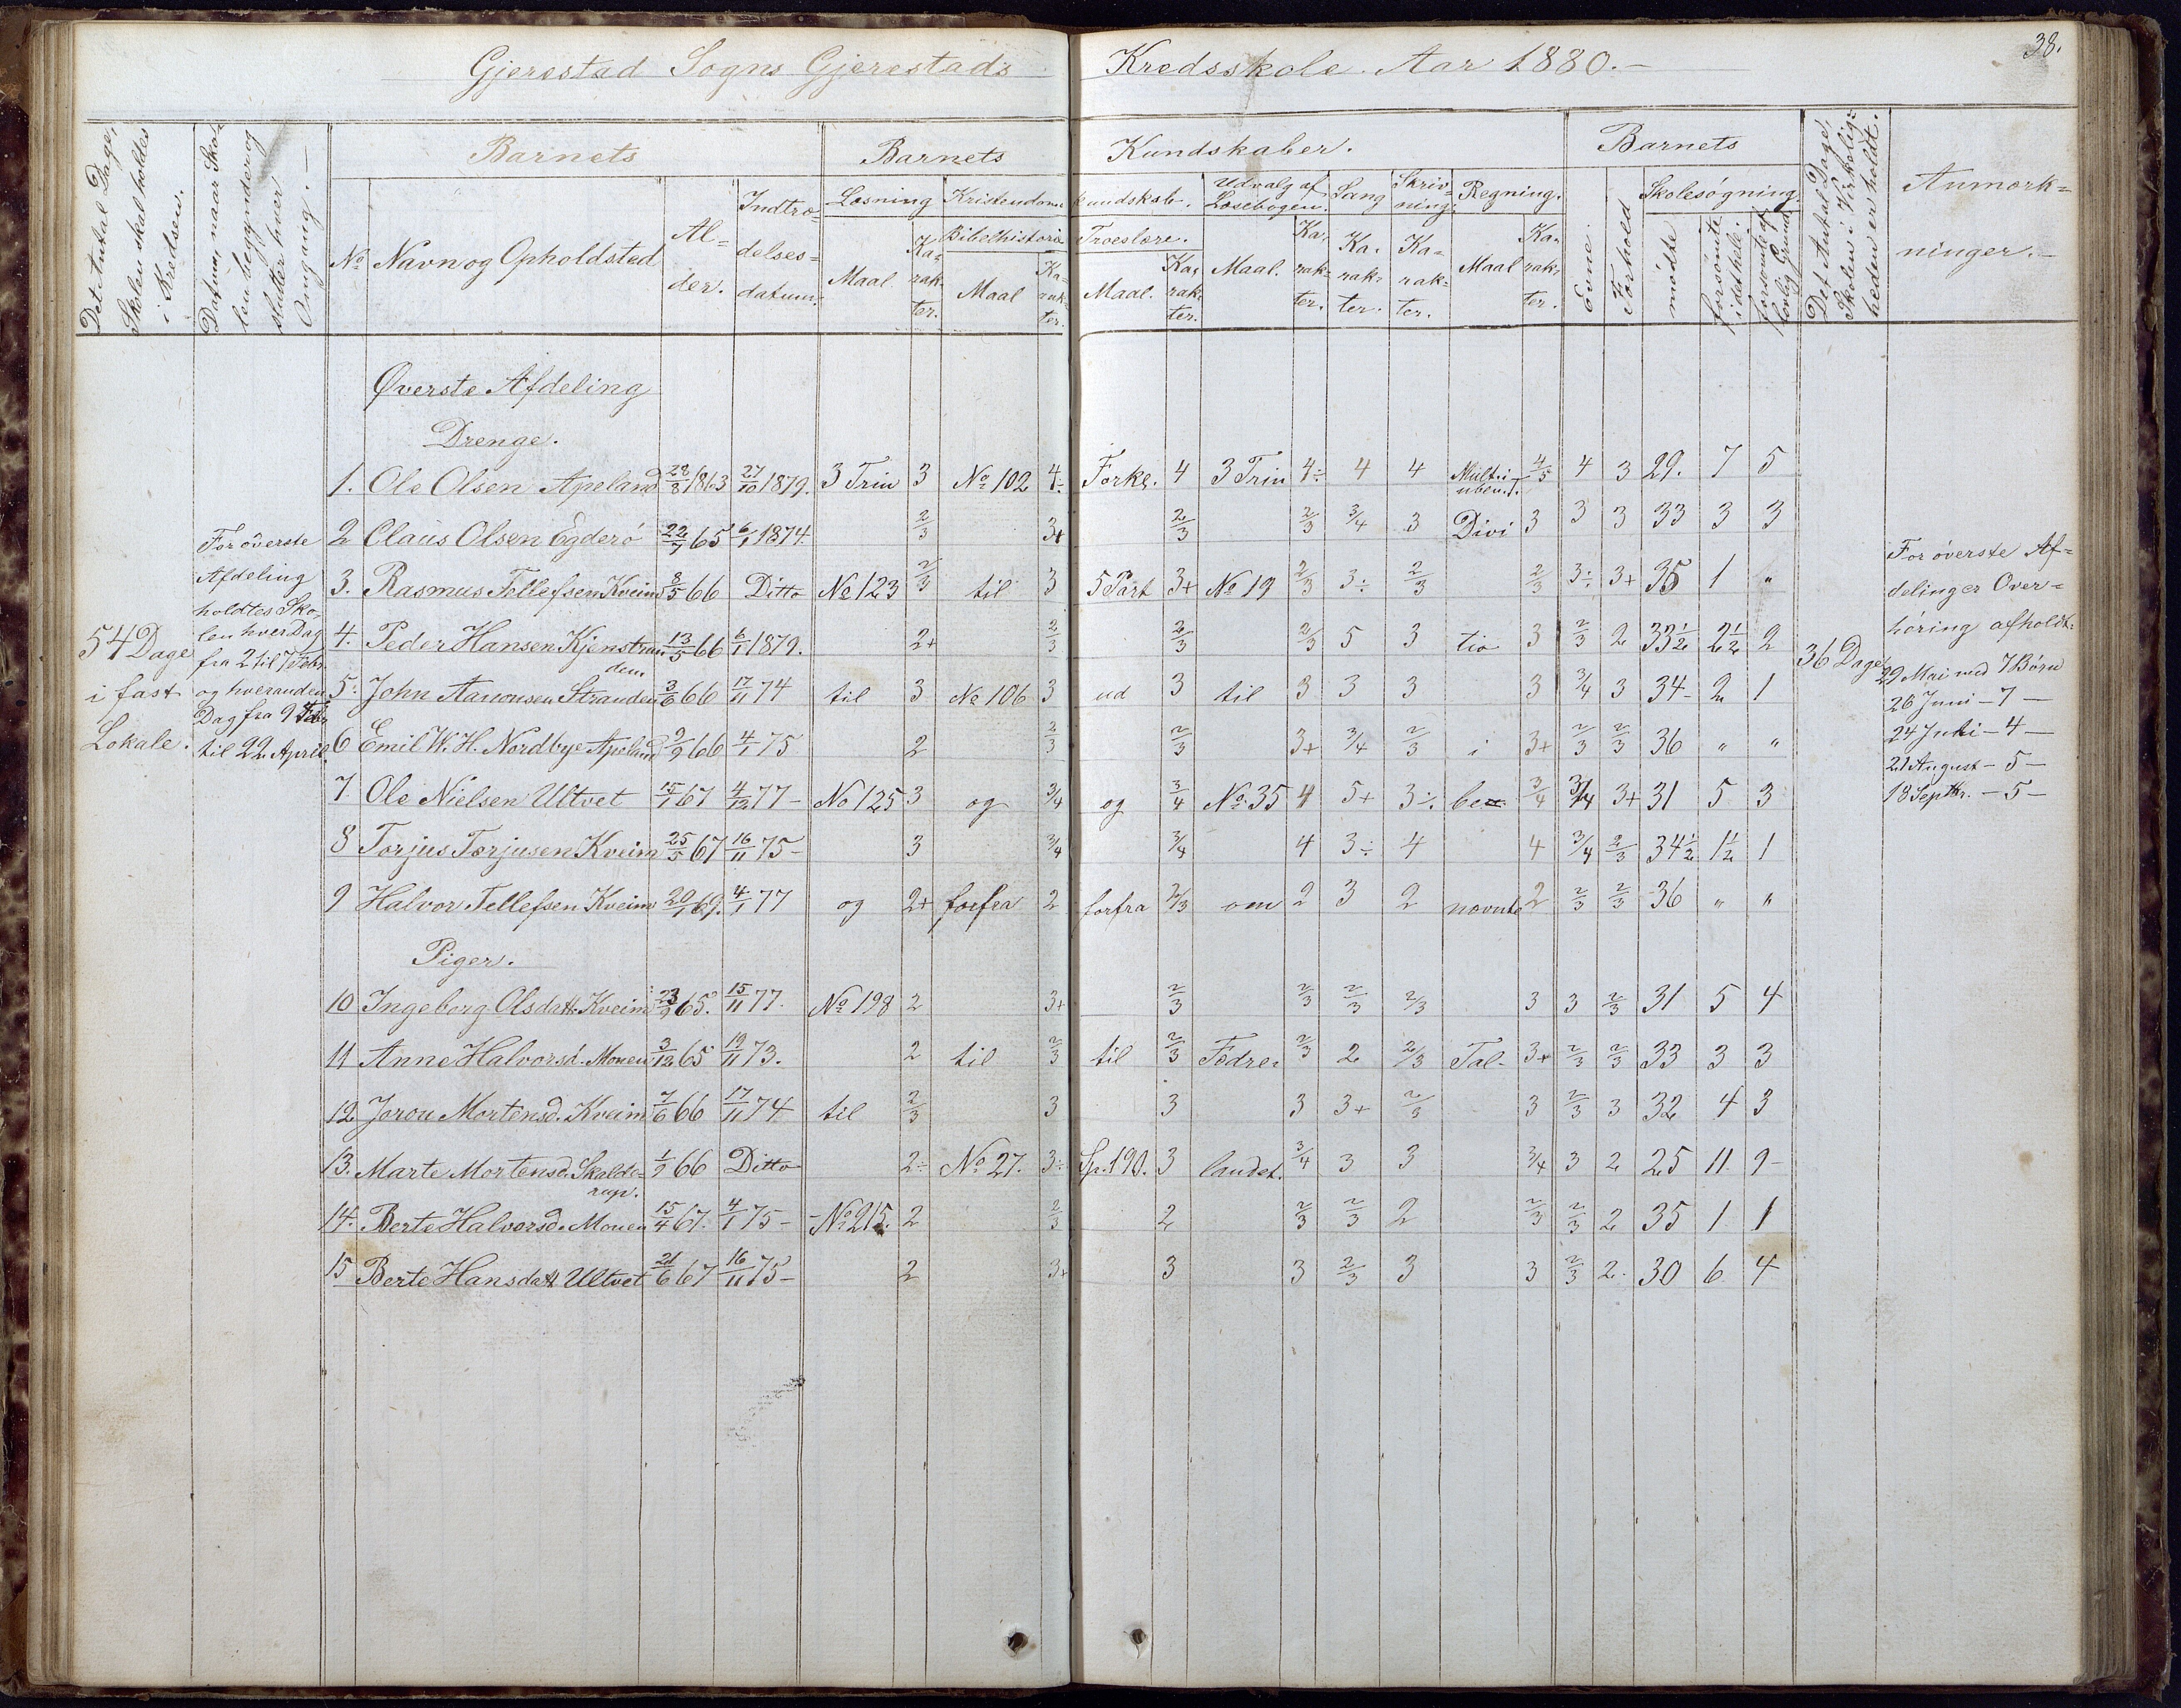 Gjerestad Sogns Gjerestads Kredsskole. Aar 1880.-
38.
Det Antal Dage, Skolen skal holdes i Kredsen.
Datum, naar Skolen begynder og slutter hver Omgang.-
Barnets
Barnets Kundskaber.
Barnets
Det Antal Dage, Skolen i Virkeligheden er holdt.
Anmærkninger.-
No Navn og Opholdsted
Alder.
Indtrædelsesdatum.
Læsning
Maal. Karakter.
Kristendomskundskab.
Bibelhistorie
Maal Karakter.
Troeslære.
Maal. Karakter.
Udvalg af Læsebogen.
Maal. Karakter.
Sang
Karakter.
Skrivning.
Karakter.
Regning.
Maal Karakter.
Evne.
Forhold
Skolesøgning.
mødte
forsømte idethele.
forsømte af lovlig Grund
Øverste Afdeling
Drenge.
1. Ole Olsen Apeland 28/8 1863 27/10 1879. 3 Trin 3 No 102 4÷ Forkl. 4 3 Trin 4÷ 4 4 Multi i uben. T. 4/5 4 3 29. 7 5
2 Claus Olsen Egderö 22/7 65 6/1 1874. 2/3 3+ 2/3 2/3 3/4 3 Divi 3 3 3 33 3 3
3. Rasmus Tellefsen Kveim 8/5 66 Ditto No 123 2/3 til 3 5 Part 3+ No 19 2/3 3÷ 2/3 2/3 3÷ 3+ 35 1 "
4. Peder Hansen Kjenstranden 13/5 66 6/1 1879. 2+ 2/3 2/3 2/3 5 3 tio 3 2/3 2 33½ 2½ 2
5. John Aanonsen Stranden 3/6 66 17/11 74 til 3 No 106 3 ud 3 til 3 3 3 3 3/4 3 34- 2 1
6 Emil W. H. Nordbye Apeland 9/9 66 4/1 75 2 2/3 2/3 3+ 3/4 2/3 i 3+ 2/3 2/3 36 " "
7 Ole Nielsen Ultvet 15/1 67 4/12 77- No 125 3 og 3/4 og 3/4 No 35 4 5+ 3÷ be= 3/4 3/4 3+ 31 5 3
8 Torjus Torjusen Kveim 25/5 67 16/11 75- 3 3/4 3/4 4 3÷ 4 4 3/4 2/3 34½ 1½ 1
9 Halvor Tellefsen Kveim 20/1 69. 4/1 77 og 2+ forfra 2 forfra 2/3 om 2 3 2 nævnte 2 2/3 2/3 36 " "
Piger.
10 Ingeborg Olsdatt. Kveim 23/9 65. 15/11 77. No 198 2 3+ 2/3 2/3 2/3 2/3 3 3 2/3 31 5 4
11 Anne Halvorsd. Moen 3/12 65 19/11 73. 2 til 2/3 til 2/3 Fædre= 2/3 2 2/3 Tal- 3+ 2/3 2/3 33 3 3
12. Joron Mortensd. Kveim 7/6 66 17/11 74 til 2/3 3 3 3 3+ 2/3 3 2/3 3 32 4 3
13. Marte Mortensd. Skalderup. 1/9 66 Ditto 2÷ No 27. 3÷ Sp. 190. 3 landet. 3/4 3 3 3/4 3 2 25 11. 9-
14. Berte Halvorsd. Moen 15/4 67. 4/1 75- -No 215. 2 2/3 2 2/3 2/3 2 2/3 2/3 2 35 1 1
15 Berte Hansdatt Ultvet 21/6 67 16/11 75- 2 3+ 3 3 2/3 3 3 2/3 2. 30 6 4
54 Dage
i fast
Lokale.
For øverste
Afdeling
holdtes Sko-
len hver Dag
fra 2 til 7 Febr.
og hveranden
Dag fra 9 Febr
til 22 April.
36 Dage
For øverste Af=
delinger Over=
høring afholdt:
29 Mai med 7 Børn
26 Juni - 7 -
24 Juli - 4 -
21 August - 5 -
18 Septbr. - 5 -